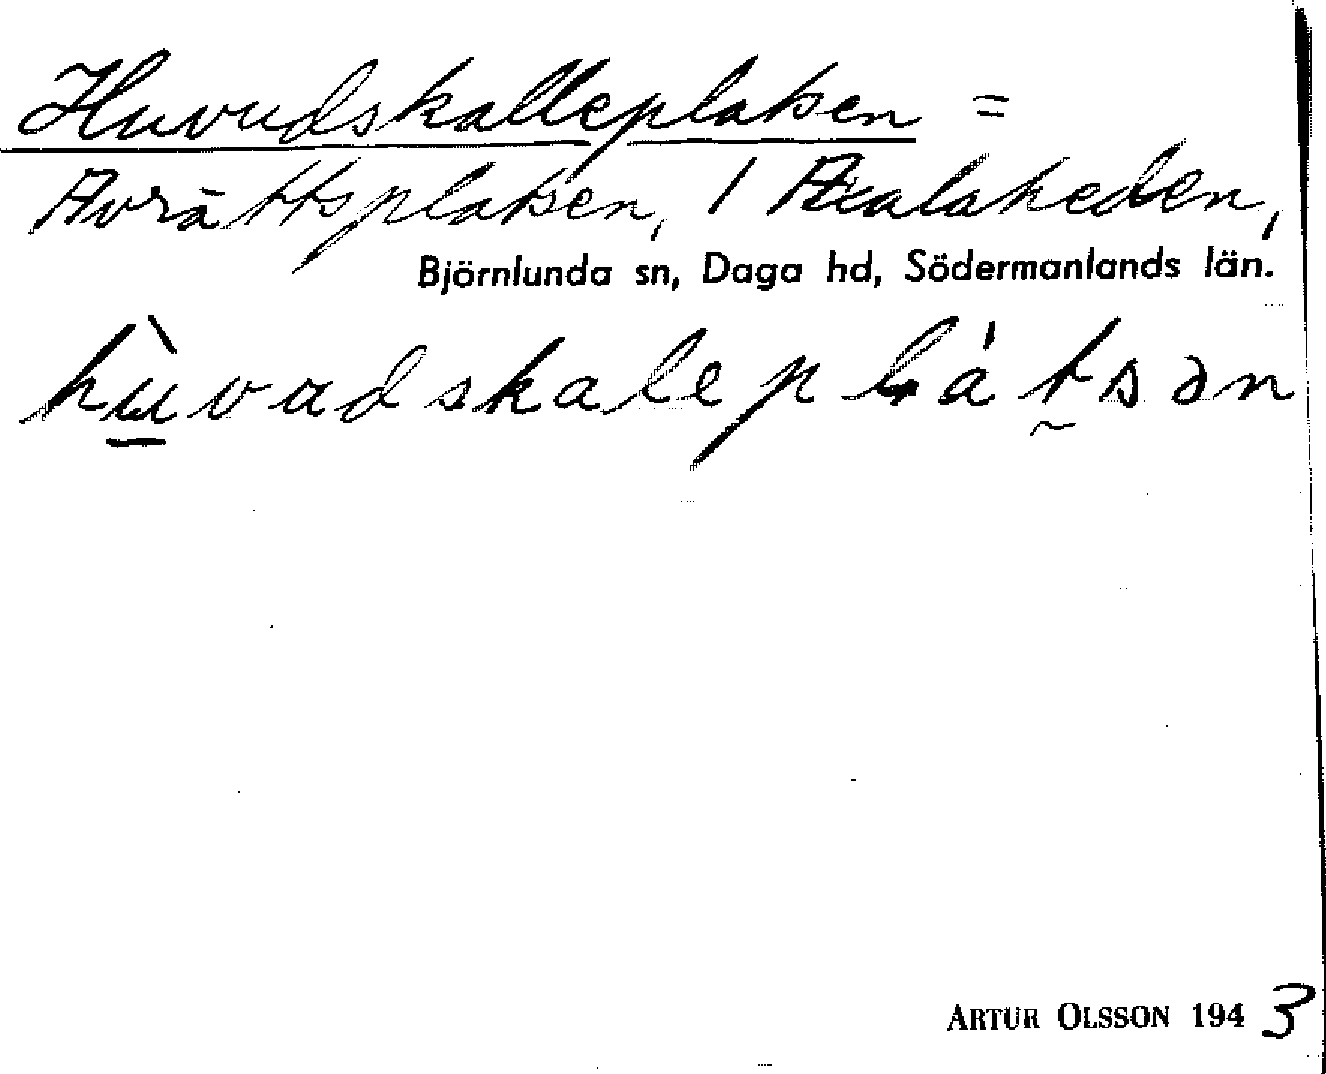 Huvudskalleplatsen =
Avrättsplatsen, 1
Björnlunda sn, Daga hd, Södermanlands län.
hùvudskaleplátsən
ARTUR OLSSON 1943